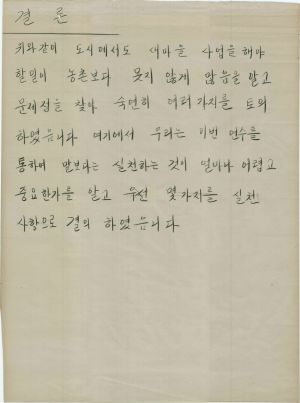 결론
위와 같이 도시에서도 새마을 사업을 해야
할 일이 농촌보다 못지 않게 많음을 알고
문제점을 찾아 숙연히 여러가지를 토의
하였읍니다 여기에서 우리는 이번 연수를
통하여 말보다는 실천하는 것이 얼마나 어렵고
중요한가를 알고 우선 몇가지를 실천
사항으로 결의 하였읍니다